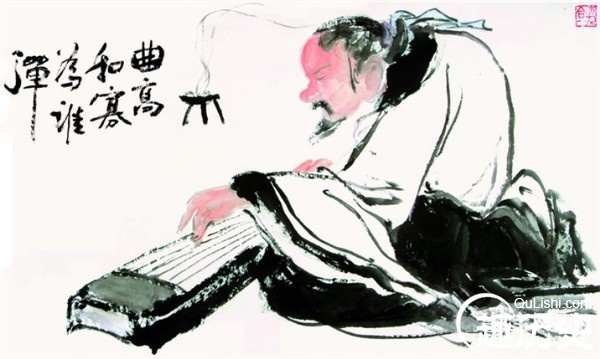 曲高
和寡
為誰
彈
QuLishi.com
趣历史